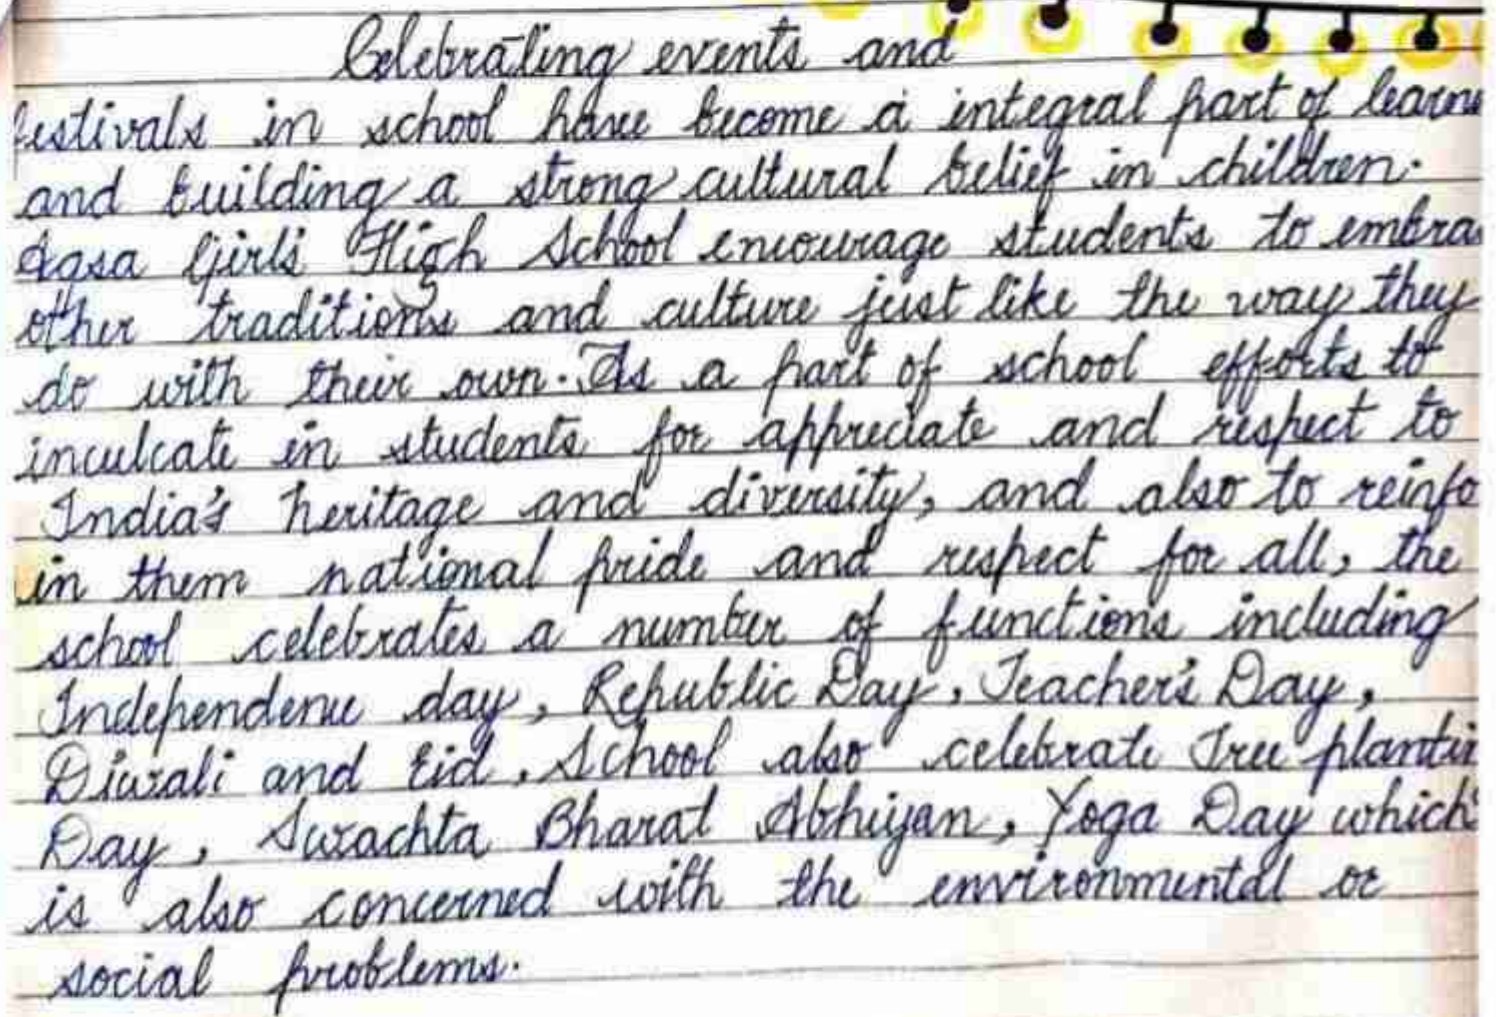 Celebrating events and
festivals in school have become a integral part of learn
and building a strong cultural belief in children.
Aqsa Girls High School encourage students to embra
other traditions and culture just like the way they
do with their own. As a part of school efforts to
inculcate in students for appreciate and respect to
India's heritage and diversity, and also to reinfo
in them national pride and respect for all, the
school celebrates a number of functions including
Independence day, Republic Day, Teacher's Day,
Diwali and Eid. School also celebrate Tree plantin
Day, Swachta Bharat Abhiyan, Yoga Day which
is also concerned with the environmental or
social problems.